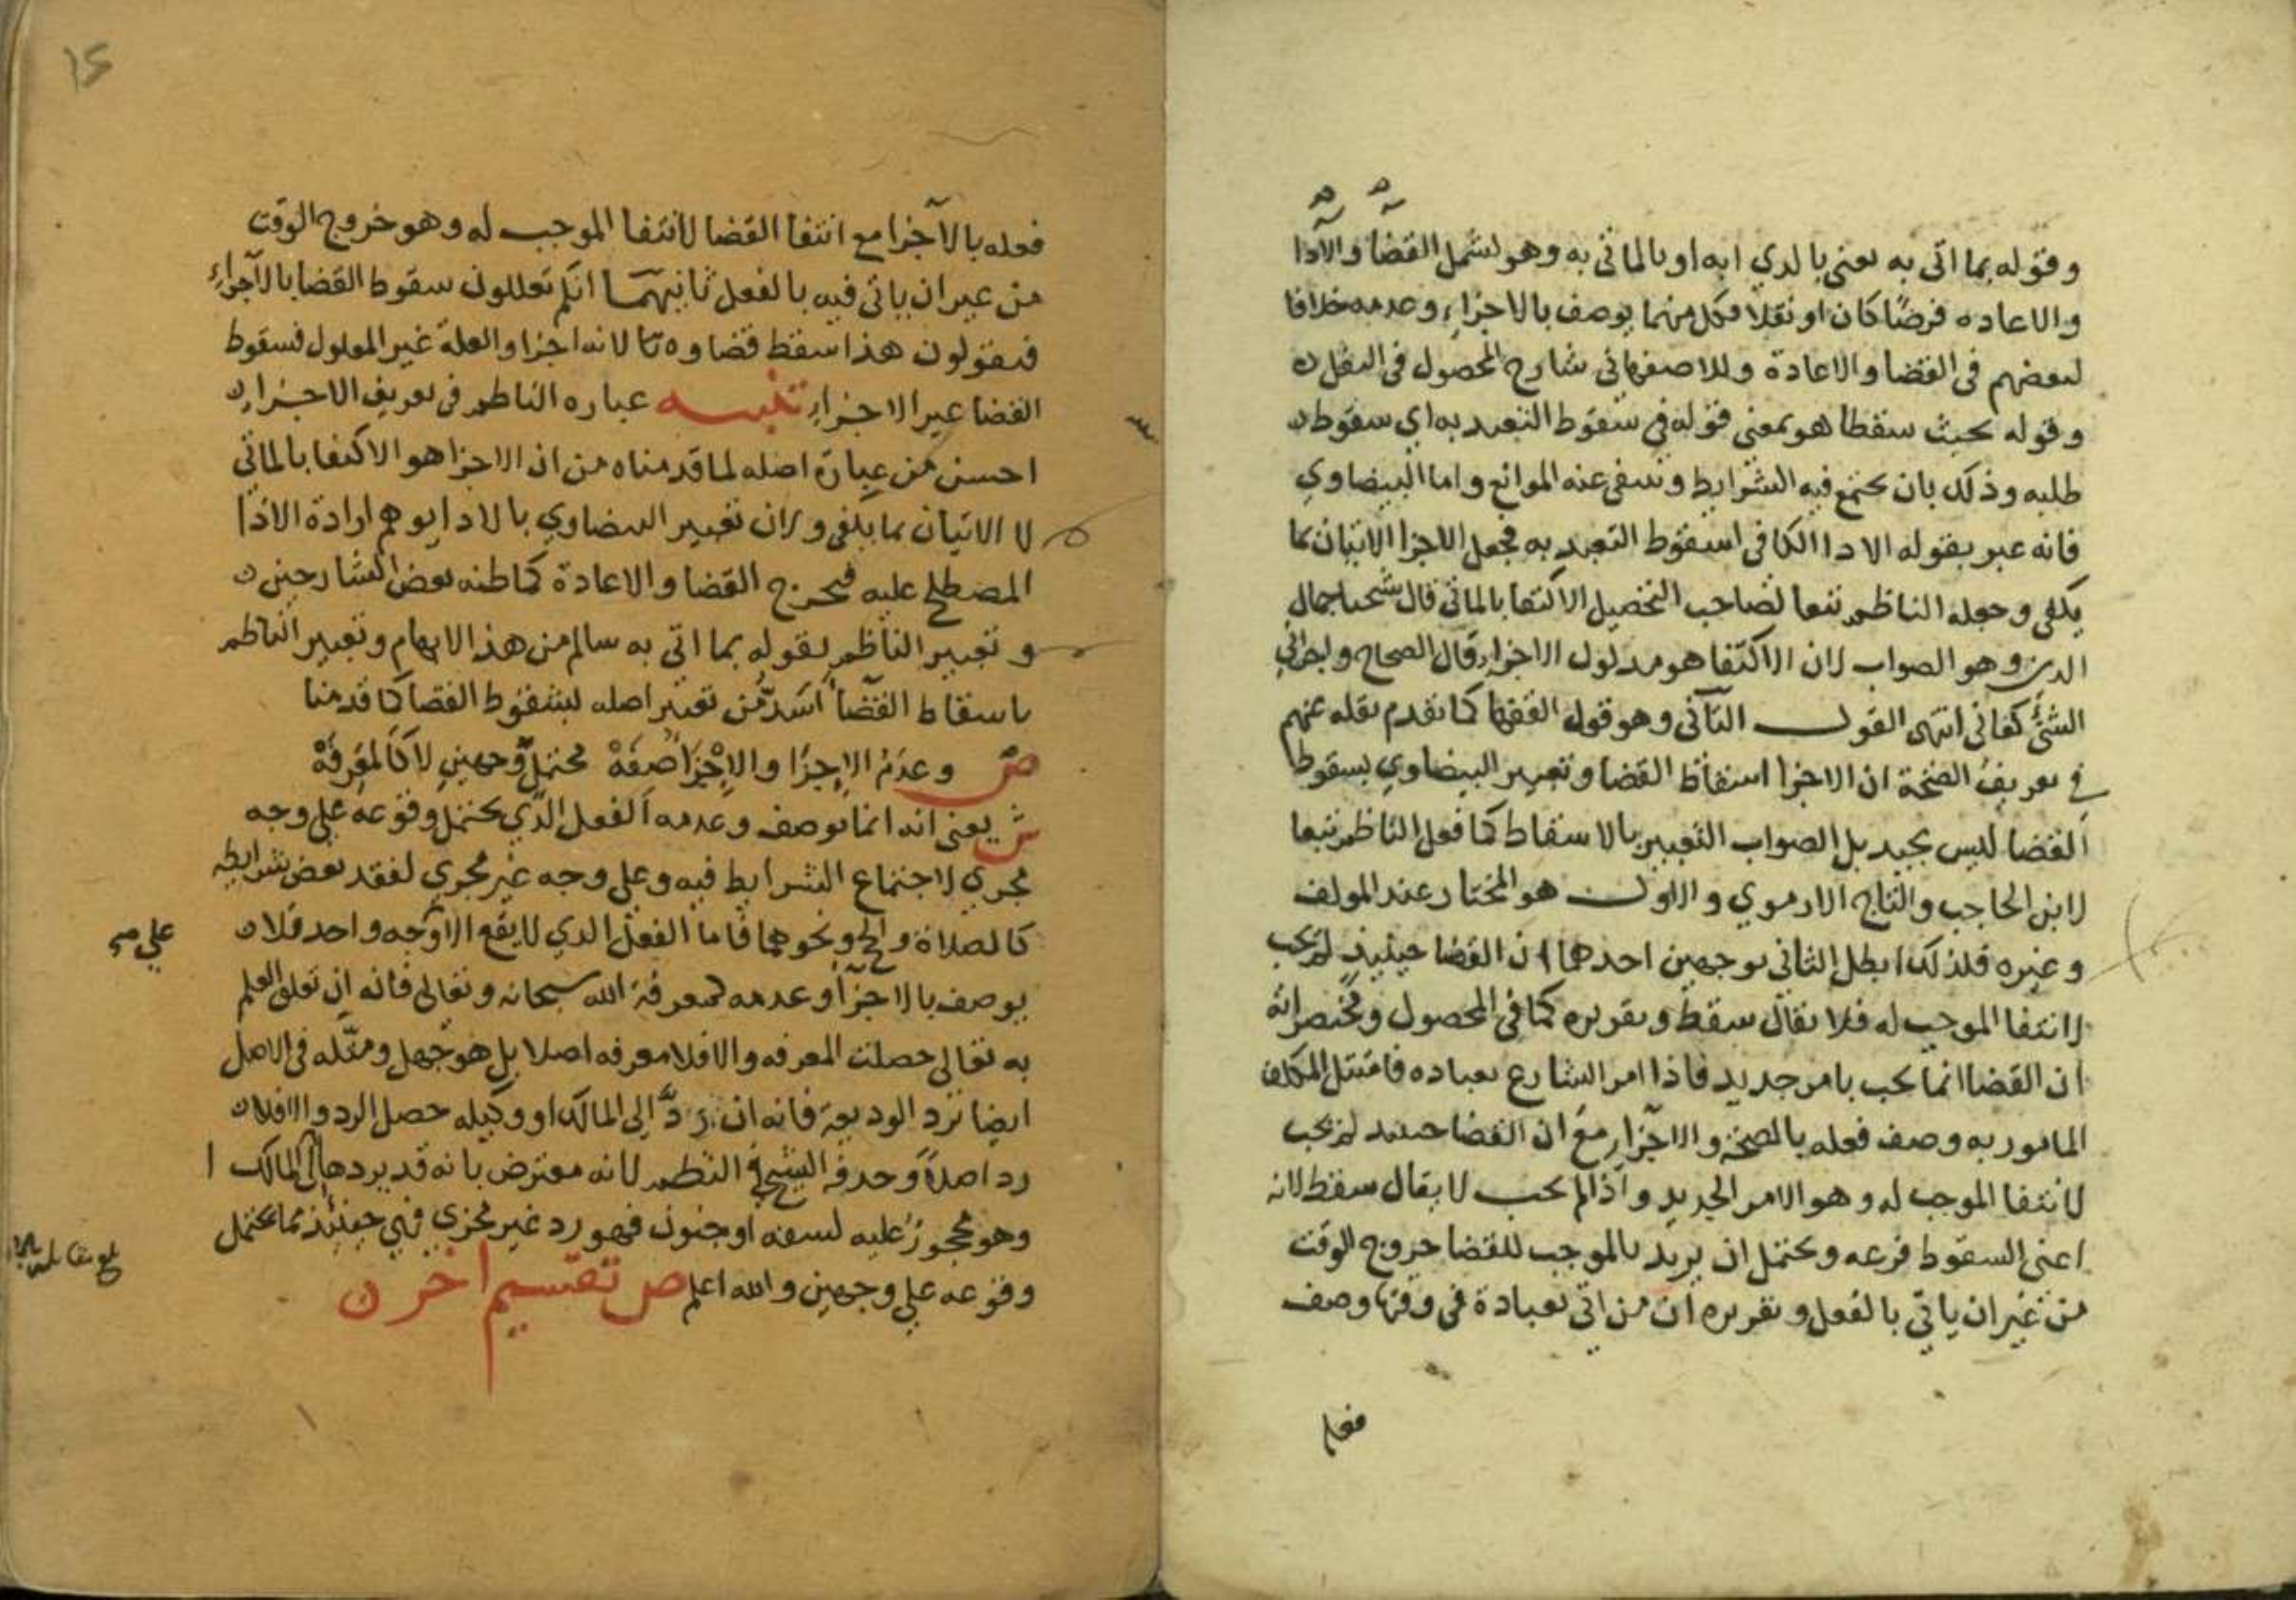 وقوله بما اتى به يعني بالذي اتى به او بالماتى به وهو يشمل القضا والادا
والاعاده فرضًا كان او نفلا فكل منهما يوصف بالاجزاء وعدمه خلافا
لبعضهم في القضا والاعادة وللاصفهاني شارح المحصول في النفل
وقوله بحيث سقطا هو بمعنى قوله في سقوط التعبد به اي سقوط
طلبه وذلك بان يجتمع فيه الشرايط وتنتفي عنه الموانع واما البيضاوي
فانه عبر بقوله الادا الكافي لسقوط التعبد به فجعل الاجزا الاتيان بما
يكفي وجعله الناظم تبعا لصاحب التحصيل الاكتفا بالماتى قال شيخنا جمال
الدين وهو الصواب لان الاكتفا هو مدلول الاجزاء قال الصحاح واجزاني
الشئ كفاني انتهى القول الثاني وهو قول الفقها كما تقدم نقله عنهم
في تعريف الصحة ان الاجزا اسقاط القضا وتعبير البيضاوي بسقوط
القضا ليس بجيد بل الصواب التعبير بالاسقاط كما فعل الناظم تبعا
لابن الحاجب والتاج الارموي والاول هو المختار عند المولف
وغيره فلذلك ابطل الثاني بوجهين احدهما ان القضا حينيذ لم يجب
لانتفا الموجب له فلا يقال سقط وتقريره كما في المحصول ومختصراته
ان القضا انما يجب بامر جديد فاذا امر الشارع بعباده فامتثل المكلف
المامور به وصف فعله بالصحة والاجزاء مع ان القضا حينيذ لم يجب
لانتفا الموجب له وهو الامر الجديد واذا لم يجب لا يقال سقط لانه
اعني السقوط فرعه ويحتمل ان يريد بالموجب للقضا خروج الوقت
من غير ان ياتي بالفعل وتقريره ان من اتى بعبادة في وقتها وصف
فعله
١٥
فعله بالاجزا مع انتفا القضا لانتفا الموجب له وهو خروج الوقت
من غير ان ياتي فيه بالفعل ثانيهما انكم تعللون سقوط القضا بالاجزاء
فتقولون هذا سقط قضاوه لانه اجزا والعلة غير المعلول فسقوط
القضا غير الاجزاء تنبيه عباره الناظم في تعريف الاجزاء
احسن من عبارة اصله لما قدمناه من ان الاجزا هو الاكتفا بالماتى
لا الاتيان بما يكفي ولان تعبير البيضاوي بالادا يوهم ارادة الادا
المصطلح عليه فيخرج القضا والاعادة كما ظنه بعض الشارحين
وتعبير الناظم بقوله بما اتى به سالم من هذا الايهام وتعبير الناظم
باسقاط القضا اسَدّ من تعبير اصله بسقوط القضا كما قدمنا
ص وعدم الاجزا والاجزا صفة محتمل وجهين لا كالمعرفة
ش يعني انه انما يوصف وعدمه الفعل الذي يحتمل وقوعه على وجه
مجزي لاجتماع الشرايط فيه وعلى وجه غير مجزي لفقد بعض شرايطه
كالصلاة والحج ونحوهما فاما الفعل الذي لا يقع الا وجه واحد فلا
على
يوصف بالاجزا وعدمه كمعرفة الله سبحانه وتعالى فانه ان تعلق العلم
به تعالى حصلت المعرفه والا فلا معرفه اصلا بل هو جهل ومثله في الاصل
ايضا برد الوديعة فانه ان رَدَّ الى المالك او وكيله حصل الرد والا فلا
رد اصلاً وحذفه الشيخ في النظم لانه معترض بانه قد يردها الى المالك
وهو محجورٌ عليه لسفه او جنون فهو رد غير مجزي فهي حينئذ مما يحتمل
وقوعه على وجهين والله اعلم ص تقسيم اخر
بلغ مقابلة